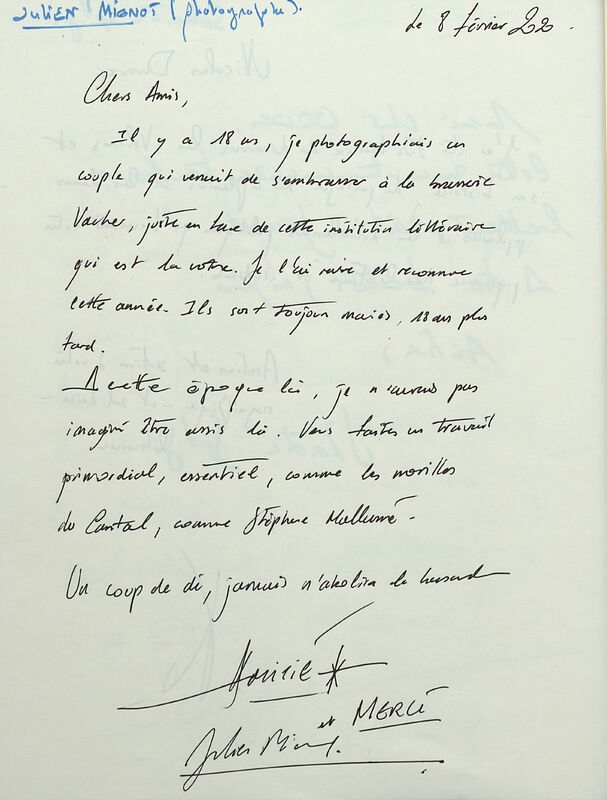 JULIEN MIGNOT (photographe).
Le 8 février 2020.
Chers Amis,
Il y a 18 ans, je photographiais un
couple qui venait de s'embrasser à la brasserie
Vacher, juste en face de cette institution littéraire
qui est la votre. Je l'ai revue et reconnue
cette année. Ils sont toujours mariés, 18 ans plus
tard.
A cette époque là, je n'aurais pas
imaginé être assis là. Vous faites un travail
primordial, essentiel, comme les morilles
du Cantal, comme Stéphane Mallarmé.
Un coup de dé, jamais n'abolira le hasard
Amitié
et MERCI
Julien Mignot.